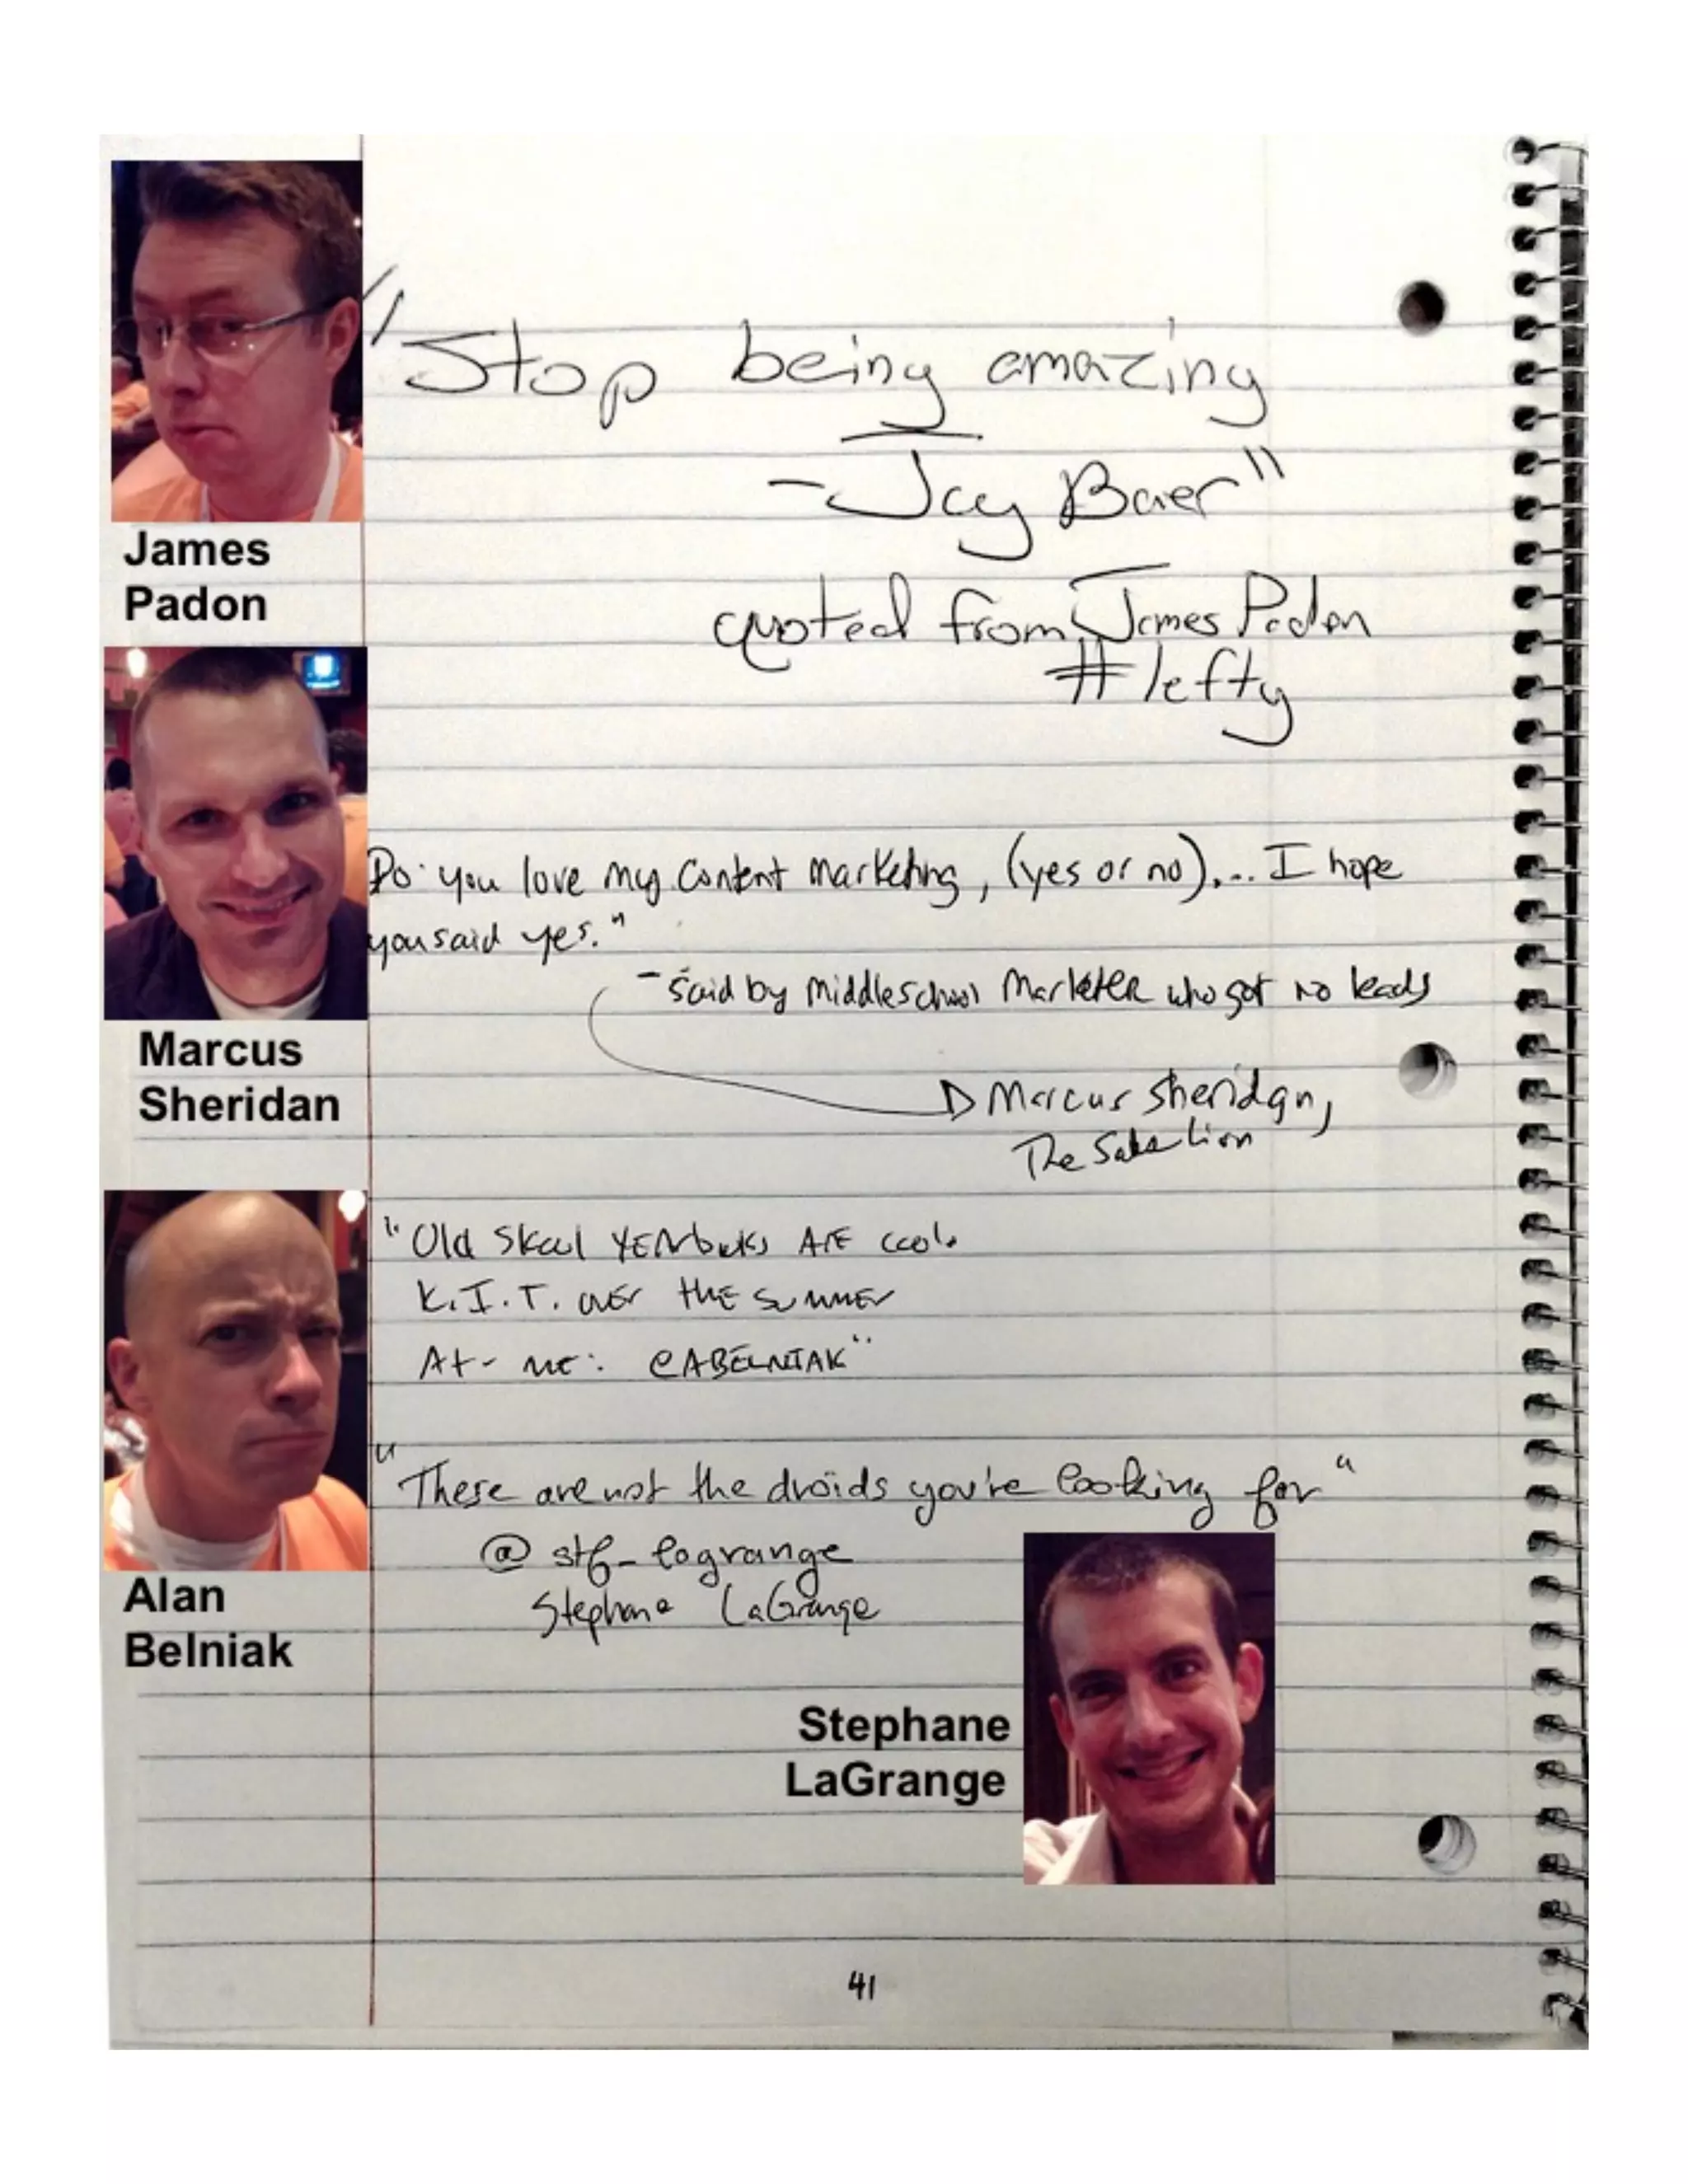 "Stop being amazing
- Jay Baer"
quoted from James Padon
#lefty
James
Padon
Do you love my Content Marketing, (yes or no)... I hope
you said yes."
- Said by Middleschool Marketer who got no leads
Marcus Sheridan,
The Sales Lion
Marcus
Sheridan
"Old Skool YEArbooks ArE cool.
K.I.T. over tHE summer
At- me: @ABELNIAK"
Alan
Belniak
"These are not the droids you're looking for"
@ stf_lagrange
Stephane LaGrange
Stephane
LaGrange
41